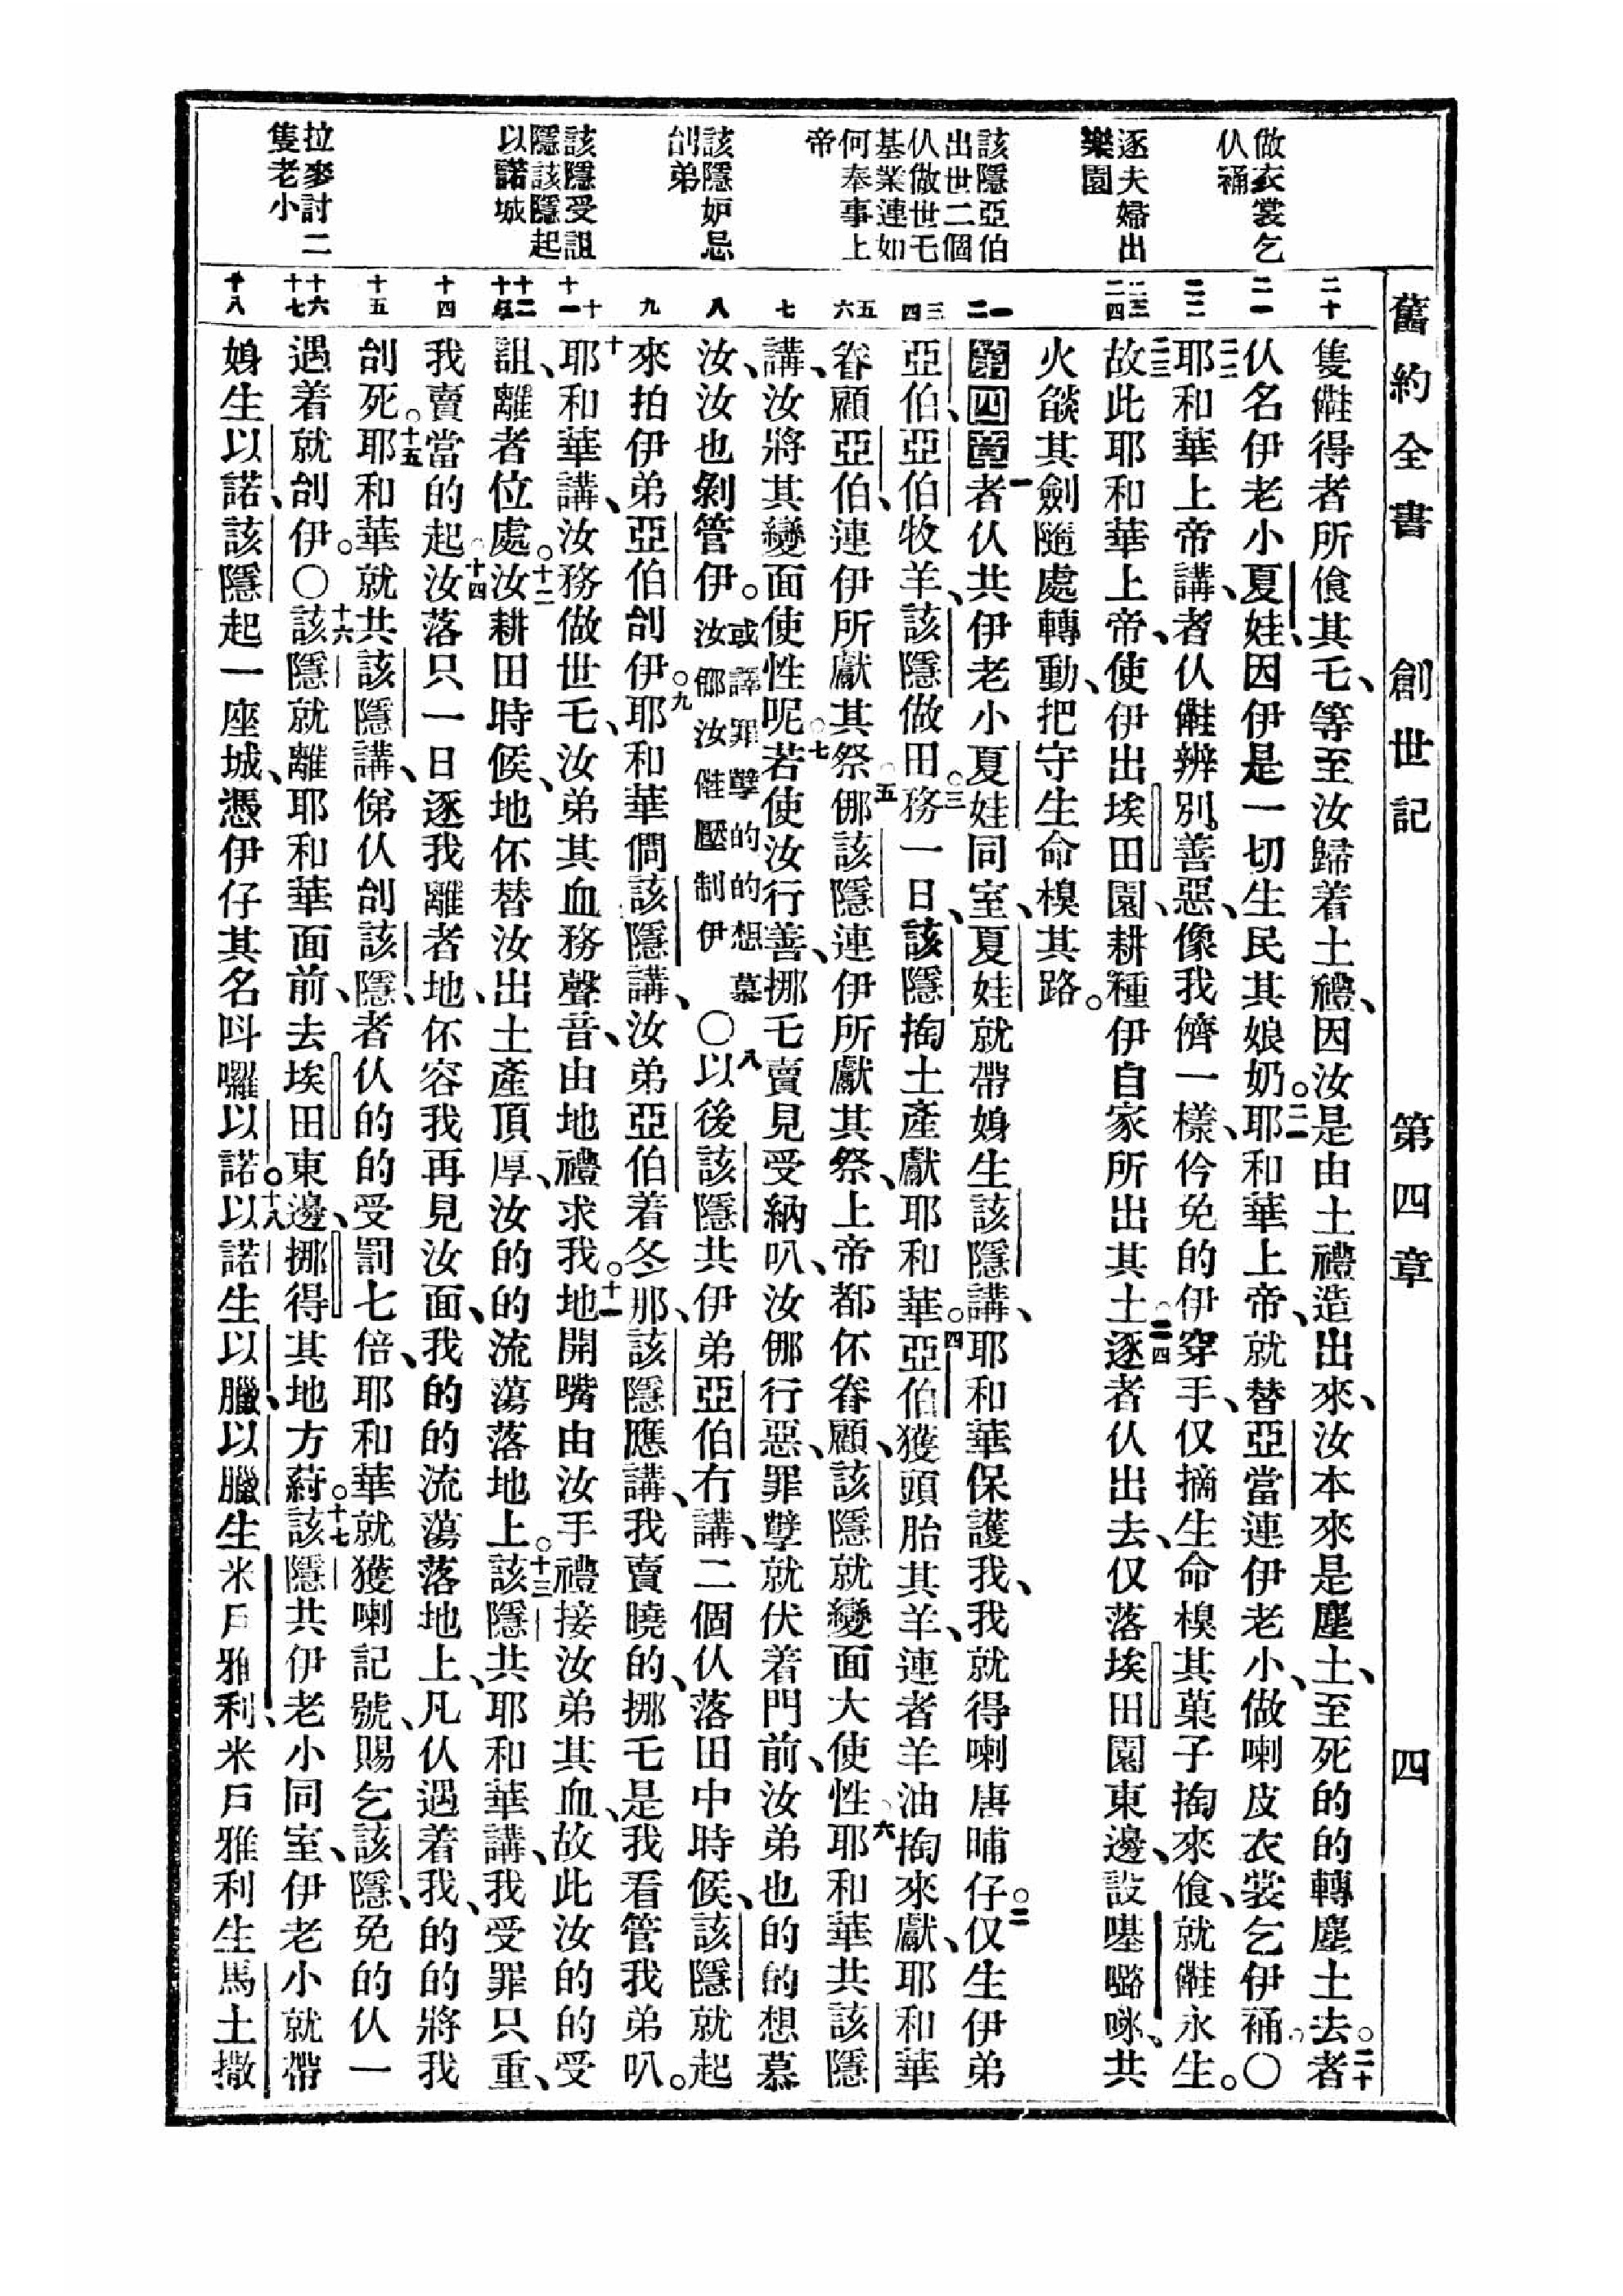 舊約全書　創世記　第四章　四
做衣裳乞
仈䘄
逐夫婦出
樂園
該隱亞伯
出世二個
仈做世乇
基業連如
何奉事上
帝
該隱妒忌
刣弟
該隱受詛
隱該隱起
以諾城
拉麥討二
隻老小
二十
二一
二二
二三
二四
一
二
三
四
五
六
七
八
九
十
十一
十二
十三
十四
十五
十六
十七
十八
隻㒸得者所飡其乇、等至汝歸着土禮、因汝是由土禮造出來、汝本來是塵土、至死的的轉塵土去。二十者
仈名伊老小夏娃、因伊是一切生民其娘奶。二一耶和華上帝、就替亞當連伊老小、做喇皮衣裳乞伊䘄。〇
二二耶和華上帝講、者仈㒸辨別善惡、像我儕一樣、仱免的伊穿手、仅摘生命模其菓子掏來飡、就㒸永生。
二三故此耶和華上帝、使伊出埃田園、耕種伊自家所出其土。二四逐者仈出去、仅落埃田園東邊、設𠸄㗉㖠、共
火燄其劍隨處轉動、把守生命模其路。
第四章一者仈共伊老小夏娃同室、夏娃就帶娠生該隱講、耶和華保護我、我就得喇唐晡仔。二仅生伊弟
亞伯、亞伯牧羊、該隱做田。三務一日、該隱掏土產獻耶和華。四亞伯獲頭胎其羊、連者羊油掏來獻、耶和華
眷顧亞伯、連伊所獻其祭。五㑚該隱連伊所獻其祭、上帝都伓眷顧、該隱就變面大使性。六耶和華共該隱
講、汝將其變面使性呢。七若使汝行善、挪乇賣見受納叭、汝㑚行惡、罪孽就伏着門前、汝弟也的的想慕
汝、汝也剝管伊。或譯罪孽的的想慕汝㑚汝㒸壓制伊〇八以後該隱共伊弟亞伯冇講、二個仈落田中時候、該隱就起
來拍伊弟亞伯刣伊。九耶和華僩該隱講、汝弟亞伯着冬那、該隱應講、我賣曉的、挪乇是我看管我弟叭。
十耶和華講、汝務做世乇、汝弟其血務聲音、由地禮求我。十一地開嘴由汝手禮接汝弟其血、故此汝的的受
詛、離者位處。十二汝耕田時候、地伓替汝出土產頂厚、汝的的流蕩落地上。十三該隱共耶和華講、我受罪只重、
我賣當的起。十四汝落只一日逐我離者地、伓容我再見汝面、我的的流蕩落地上、凡仈遇着我、的的將我
刣死。十五耶和華就共該隱講、俤仈刣該隱、者仈的的受罰七倍、耶和華就獲喇記號、賜乞該隱、免的仈一
遇着就刣伊。〇十六該隱就離耶和華面前、去埃田東邊、挪得其地方䓟。十七該隱共伊老小同室、伊老小就帶
娠生以諾、該隱起一座城、憑伊仔其名呌囉以諾。十八以諾生以臘、以臘生米戶雅利、米戶雅利生馬土撒